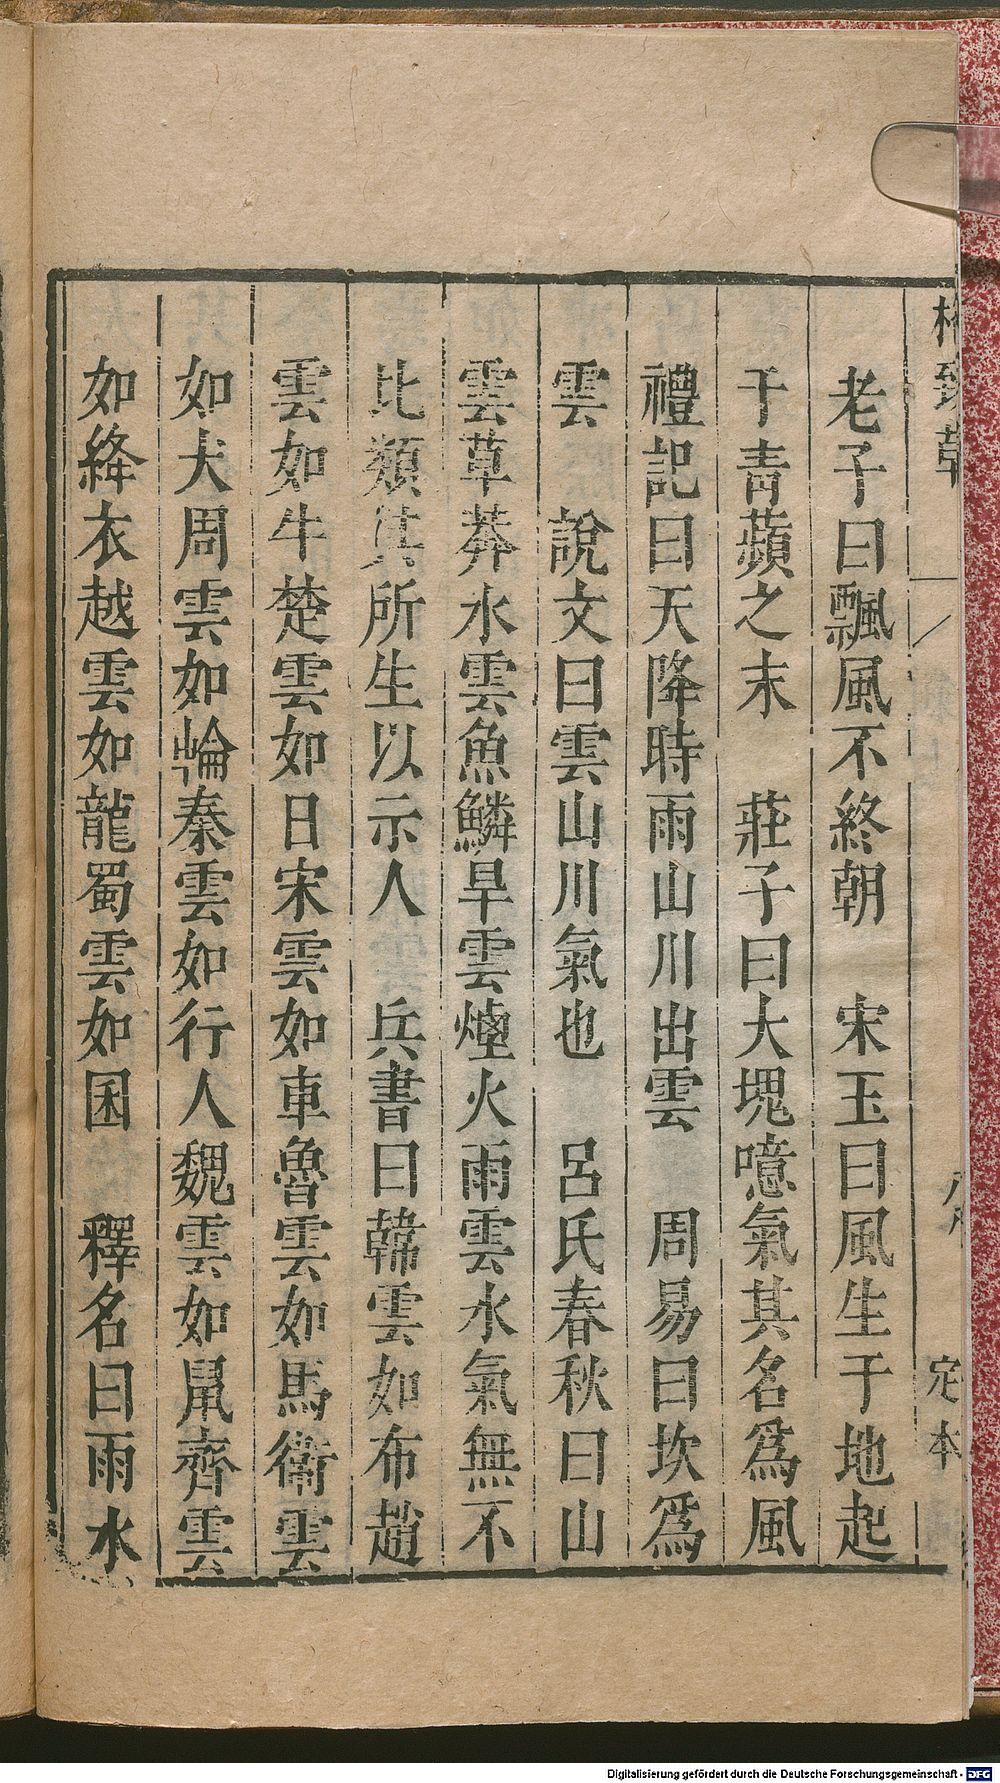 格致草
定本
老子曰飄風不終朝　宋玉曰風生于地起
于青蘋之末　莊子曰大塊噫氣其名為風
禮記曰天降時雨山川出雲　周易曰坎為
雲　說文曰雲山川氣也　呂氏春秋曰山
雲草莽水雲魚鱗旱雲煙火雨雲水氣無不
比類其所生以示人　兵書曰韓雲如布趙
雲如牛楚雲如日宋雲如車魯雲如馬衛雲
如犬周雲如輪秦雲如行人魏雲如鼠齊雲
如絳衣越雲如龍蜀雲如囷　釋名曰雨水
Digitalisierung gefördert durch die Deutsche Forschungsgemeinschaft - DFG